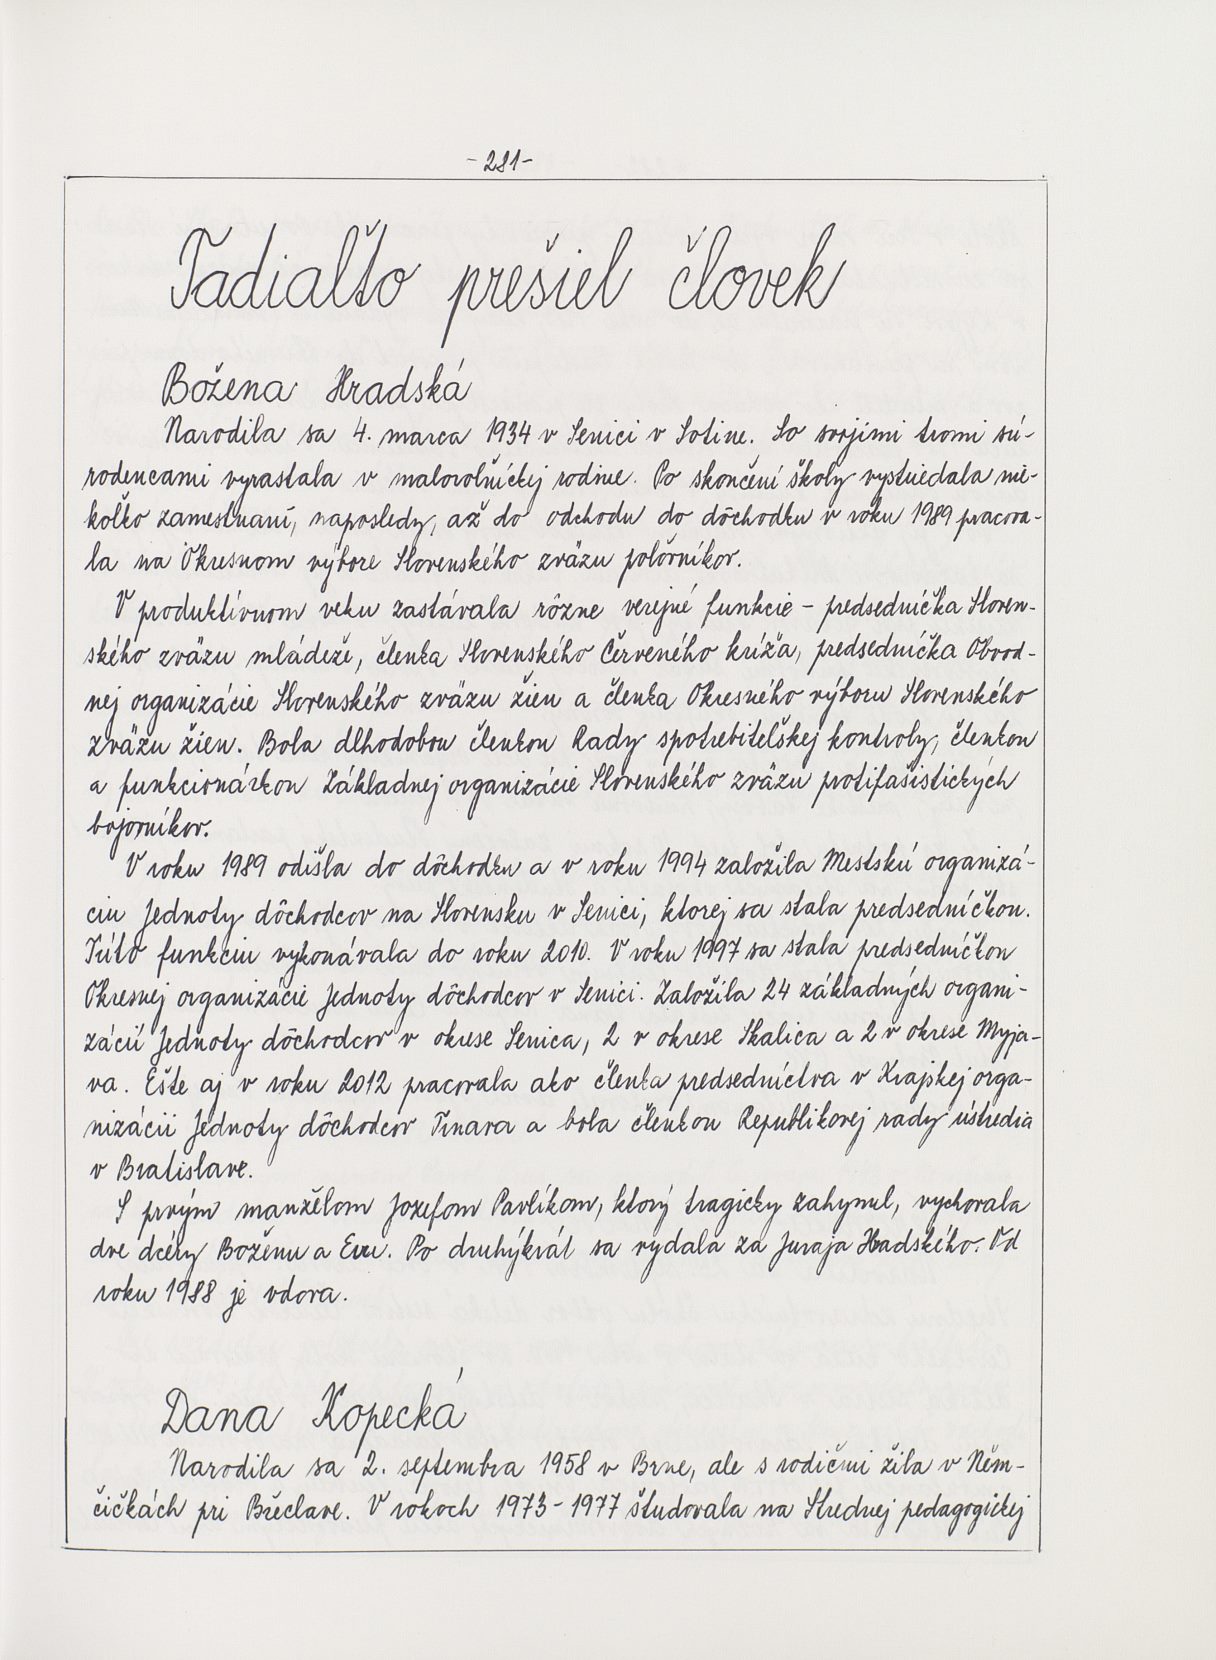 -281-
Tadiaľto prešiel človek
Božena Hradská
Narodila sa 4. marca 1934 v Senici v Sotine. So svojimi tromi sú-
rodencami vyrastala v maloroľníckej rodine. Po skončení školy vystriedala nie-
koľko zamestnaní, naposledy, až do odchodu do dôchodku v roku 1989 pracova-
la na Okresnom výbore Slovenského zväzu poľovníkov.
V produktívnom veku zastávala rôzne verejné funkcie - predsedníčka Sloven-
ského zväzu mládeže, členka Slovenského Červeného kríža, predsedníčka Obvod-
nej organizácie Slovenského zväzu žien a členka Okresného výboru Slovenského
zväzu žien. Bola dlhodobou členkou Rady spotrebiteľskej kontroly, členkou
a funkcionárkou Základnej organizácie Slovenského zväzu protifašistických
bojovníkov.
V roku 1989 odišla do dôchodku a v roku 1994 založila Mestskú organizá-
ciu Jednoty dôchodcov na Slovensku v Senici, ktorej sa stala predsedníčkou.
Túto funkciu vykonávala do roku 2010. V roku 1997 sa stala predsedníčkou
Okresnej organizácie Jednoty dôchodcov v Senici. Založila 24 základných organi-
zácií Jednoty dôchodcov v okrese Senica, 2 v okrese Skalica a 2 v okrese Myja-
va. Ešte aj v roku 2012 pracovala ako členka predsedníctva v Krajskej orga-
nizácii Jednoty dôchodcov Trnava a bola členkou Republikovej rady ústredia
v Bratislave.
S prvým manželom Jozefom Pavlíkom, ktorý tragicky zahynul, vychovala
dve dcéry Boženu a Evu. Po druhýkrát sa vydala za Juraja Hradského. Od
roku 1988 je vdova.
Dana Kopecká
Narodila sa 2. septembra 1958 v Brne, ale s rodičmi žila v Něm-
čičkách pri Břeclave. V rokoch 1973-1977 študovala na Strednej pedagogickej